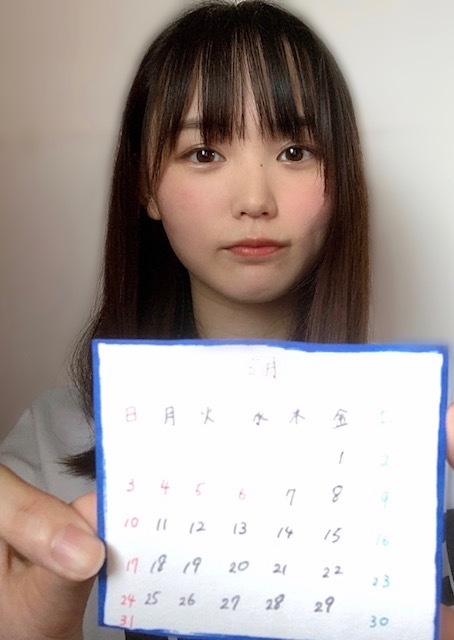 5月
日 月 火 水 木 金 土
1 2
3 4 5 6 7 8 9
10 11 12 13 14 15 16
17 18 19 20 21 22 23
24 25 26 27 28 29 30
31